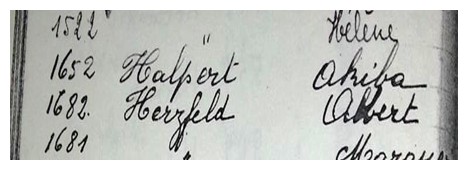 1522 " Hélène
1652 Halpert Akiba
1682. Herzfeld Albert
1681 "